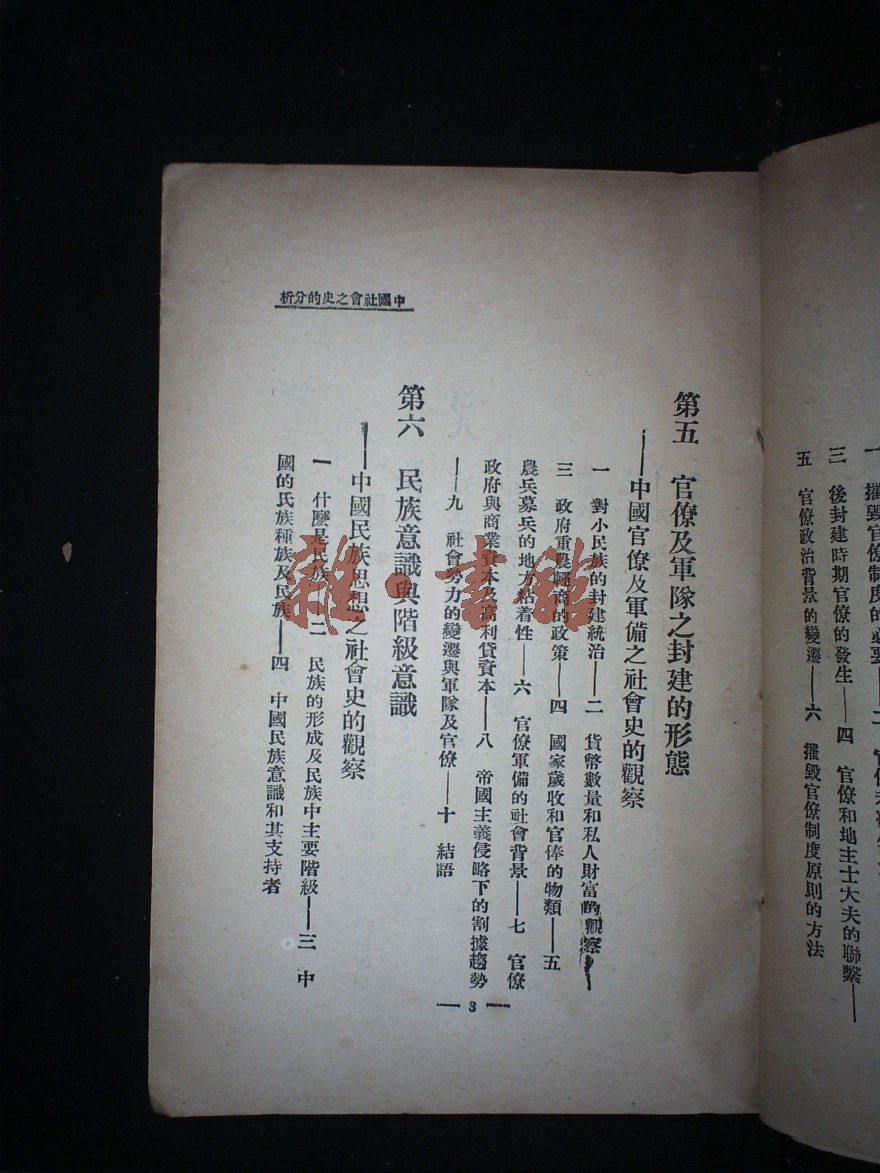 三 後封建時期官僚的發生——四 官僚和地主士大夫的聯繫——
五 官僚政治背景的變遷——六 摧毀官僚制度原則的方法
中國社會之史的分析
第五 官僚及軍隊之封建的形態
——中國官僚及軍備之社會史的觀察
一 對小民族的封建統治——二 貨幣數量和私人財富的觀察——
三 政府重農輕商的政策——四 國家歲收和官俸的物類——五
農兵募兵的地方粘着性——六 官僚軍備的社會背景——七 官僚
政府與商業資本及高利貸資本——八 帝國主義侵略下的割據趨勢
——九 社會勢力的變遷與軍隊及官僚——十 結語
第六 民族意識與階級意識
——中國民族思想之社會史的觀察
一 什麼是民族——二 民族的形成及民族中主要階級——三 中
國的民族種族及民族——四 中國民族意識和其支持者
— 3 —
雜·書館